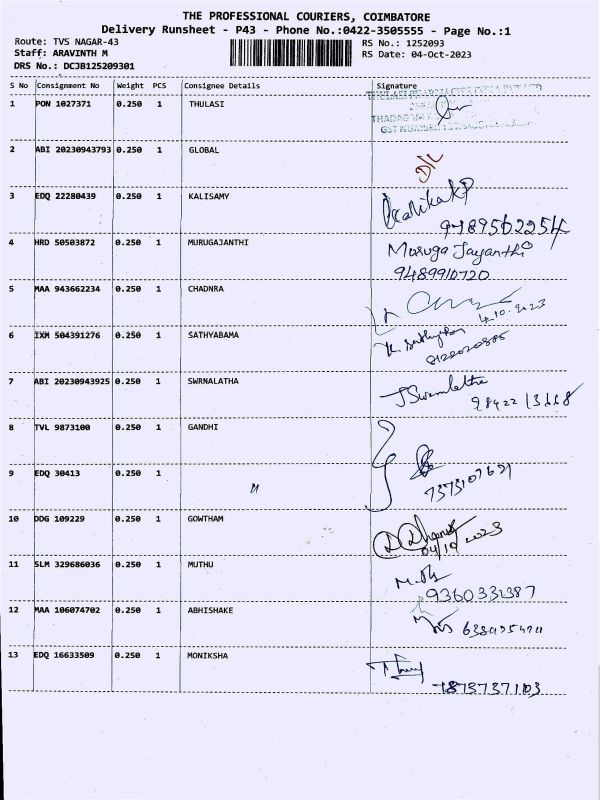 THE PROFESSIONAL COURIERS, COIMBATORE
Delivery Runsheet - P43 - Phone No.:0422-3505555 - Page No.:1
Route: TVS NAGAR-43
Staff: ARAVINTH M
DRS No.: DCJB125209301
RS No.: 1252093
RS Date: 04-Oct-2023
S No Consignment No Weight PCS Consignee Details Signature
1 PON 1027371 0.250 1 THULASI
2 ABI 20230943793 0.250 1 GLOBAL D/L
3 EDQ 22280439 0.250 1 KALISAMY
9489502254
4 HRD 50503872 0.250 1 MURUGAJANTHI Muruga Jayanthi
9489910720
5 MAA 943662234 0.250 1 CHADNRA
4.10.2023
6 IXM 504391276 0.250 1 SATHYABAMA
7 ABI 20230943925 0.250 1 SWRNALATHA
8 TVL 9873100 0.250 1 GANDHI
9 EDQ 30413 0.250 1
7373107691
10 DDG 109229 0.250 1 GOWTHAM
04/10/2023
11 SLM 329686036 0.250 1 MUTHU
9360331387
12 MAA 106074702 0.250 1 ABHISHAKE
13 EDQ 16633509 0.250 1 MONIKSHA